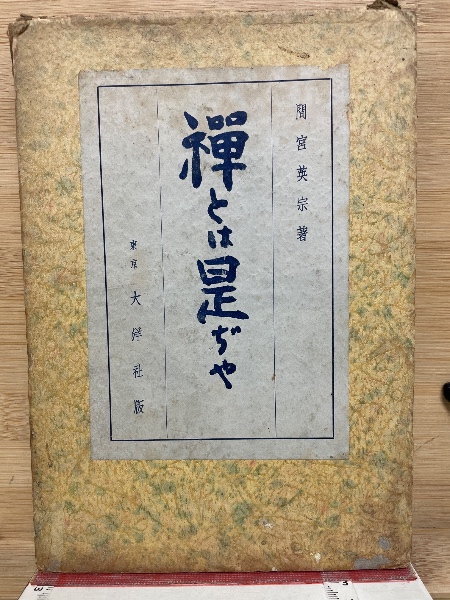 間宮英宗著
禪とは是ぢや
東京 大洋社版